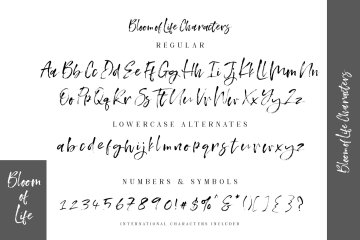 Bloom of Life Characters
REGULAR
Aa Bb Cc Dd Ee Ff Gg Hh Ii Jj Kk Ll Mm Nn
Oo Pp Qq Rr Ss Tt Uu Vv Ww Xx Yy Zz
LOWERCASE ALTERNATES
a b c d e f g h i j k l m n o p q r s t u v w x y z
NUMBERS & SYMBOLS
1 2 3 4 5 6 7 8 9 0 ! @ # $ % ^ & * ( ) [ ] { } ?
INTERNATIONAL CHARACTERS INCLUDED
Bloom
of
Life
Bloom of Life Characters